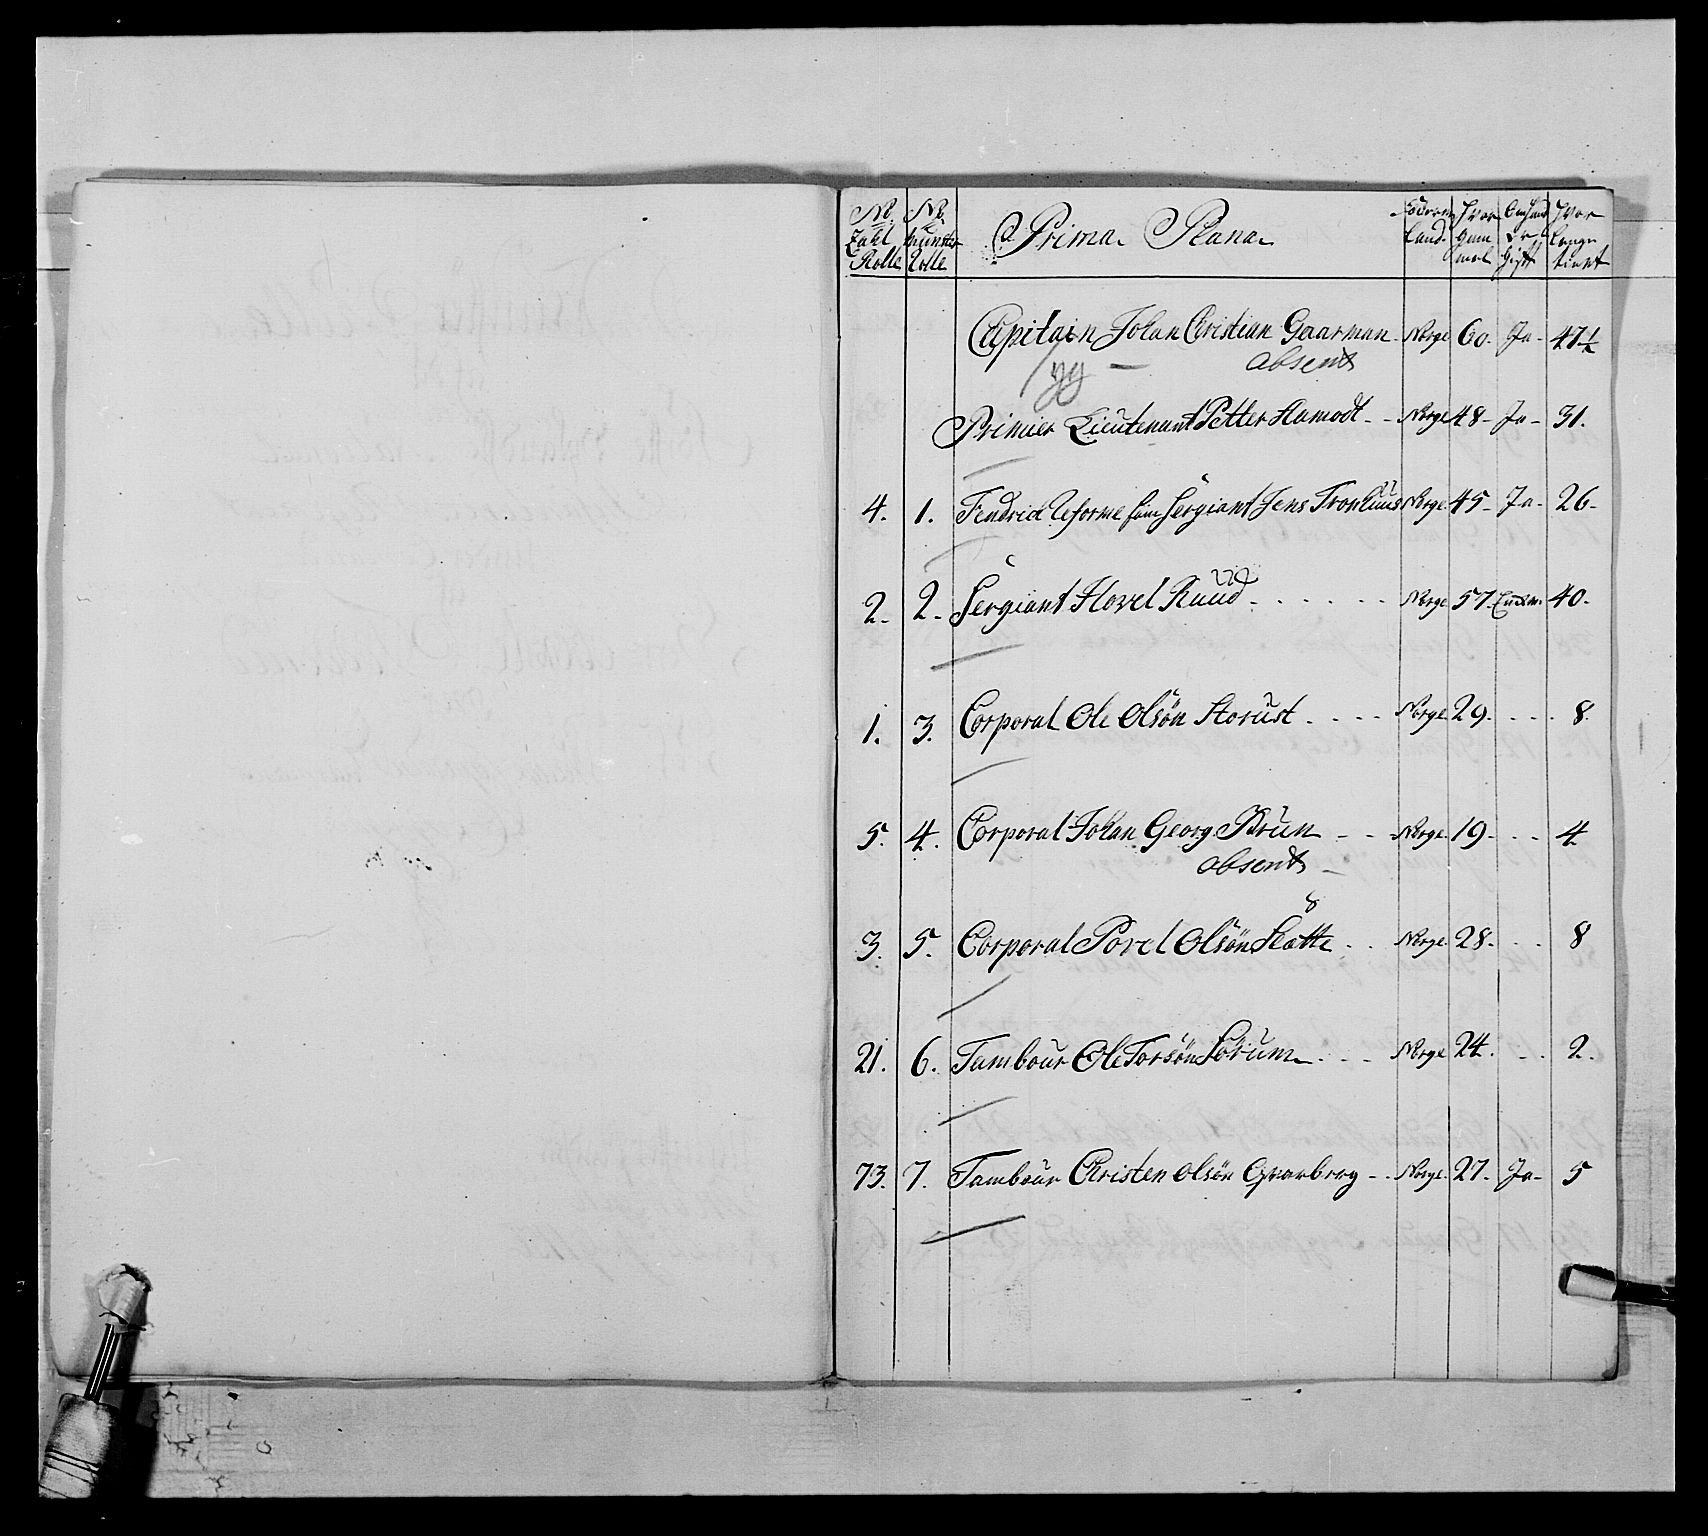 No. Zahl Rolle
No. Munster Rolle
Prima Plana
Födern Land.
Hvor Gam mel
Om hand Er Gift
Hvor Lenge tient
Capitain Johan Christian Gaarman Norge 60. Ja 47½
absent
Premier Lieutenant Petter Hamodt Norge 48 Ja 31.
4. 1. Fendrich Reforme som Sergiant Jens Norge 45 Ja 26
2. 2. Sergiant Hovel Ruud Norge 57 Enckem. 40.
1. 3. Corporal Ole Olsön Storust Norge 29. 8.
5. 4. Corporal Johan Georg Brun Norge 19. 4
absent
3. 5. Corporal Povel Olsön Slatte Norge 28. 8
21. 6. Tambour Ole Torsön Sörum Norge 24. 2.
73. 7. Tambour Christen Olsön Qvarberg Norge 27. Ja 5